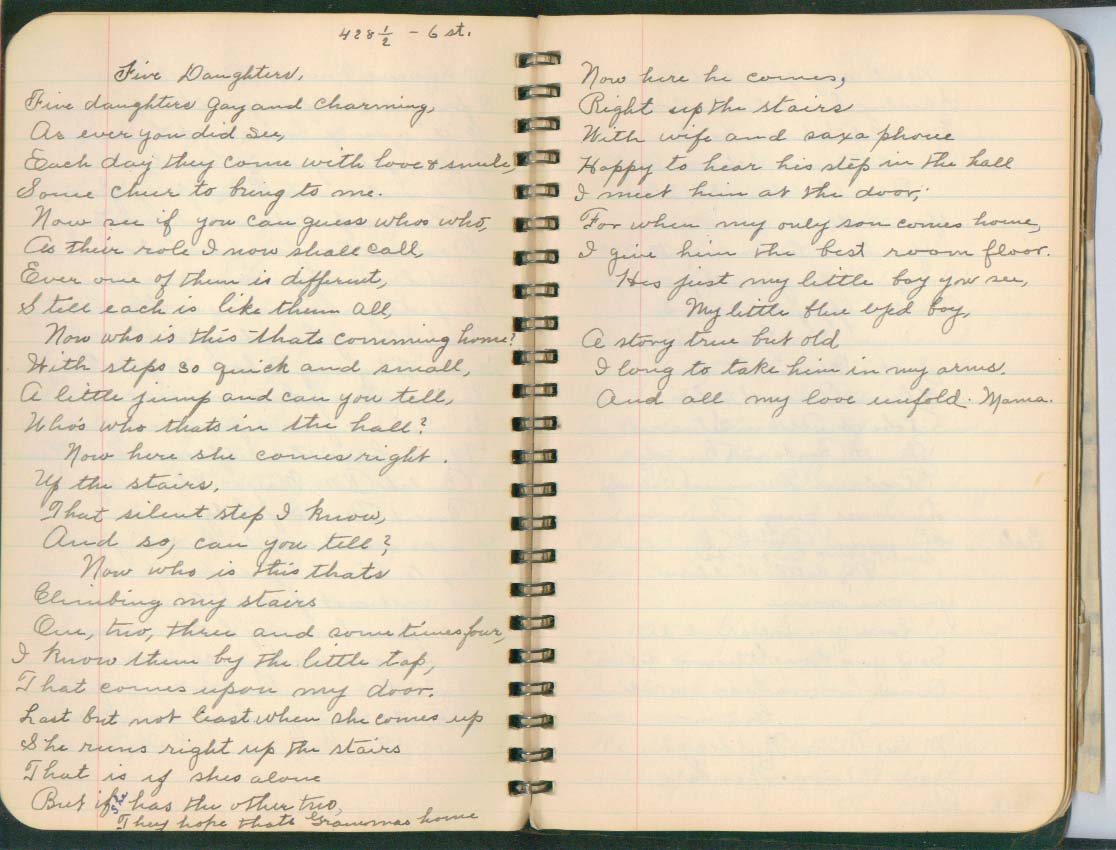 428½ - 6 st.
Five Daughters,
Five daughters gay and charming,
As ever you did see,
Each day they come with love & smile,
Some cheer to bring to me.
Now see if you can guess whos who,
As their role I now shall call,
Ever one of them is different,
Still each is like them all,
Now who is this thats comming home?
With steps so quick and small,
A little jump and can you tell,
Who's who thats in the hall?
Now here she comes right.
Up the stairs.
That silent step I know,
And so, can you tell?
Now who is this thats
Climbing my stairs
One, two, three and sometimes four,
I know them by the little tap,
That comes upon my door.
Last but not least when she comes up
She runs right up the stairs
That is if shes alone
But if she has the other two,
They hope thats Grammas home
Now here he comes,
Right up the stairs
With wife and saxaphone
Happy to hear his step in the hall
I meet him at the door;
For when my only son comes home,
I give him the best room floor.
Hes just my little boy you see,
My little blue eyed boy,
A story true but old
I long to take him in my arms.
And all my love unfold. Mama.